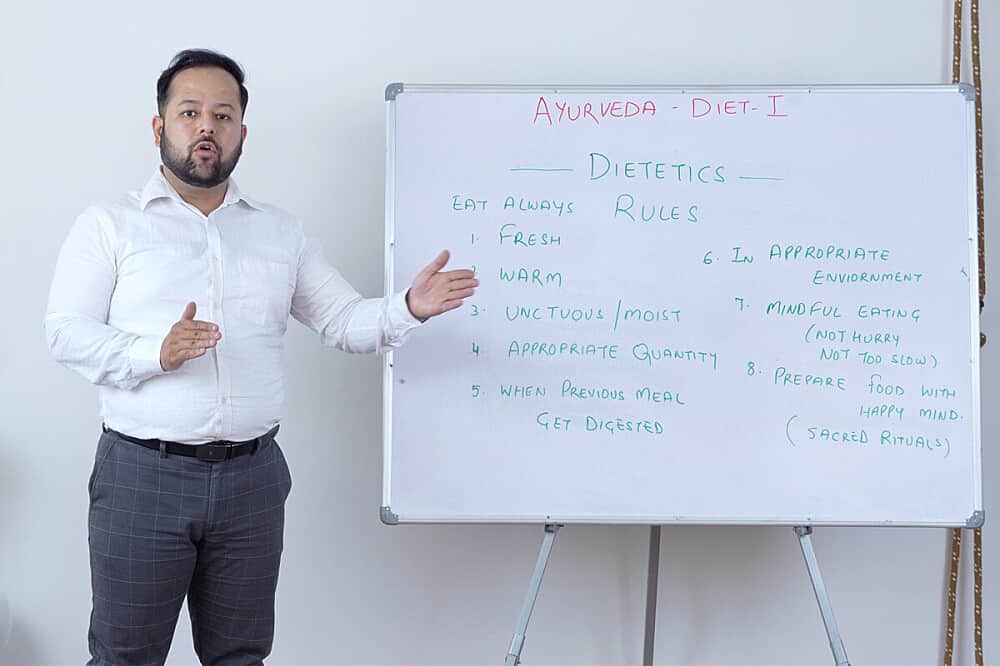 AYURVEDA - DIET-I
DIETETICS
EAT ALWAYS RULES
1. FRESH
2 WARM
3. UNCTUOUS/MOIST
4 APPROPRIATE QUANTITY
5. WHEN PREVIOUS MEAL
GET DIGESTED
6. IN APPROPRIATE
ENVIORNMENT
7. MINDFUL EATING
(NOT HURRY
NOT TOO SLOW)
8. PREPARE FOOD WITH
HAPPY MIND.
(SACRED RITUALS)